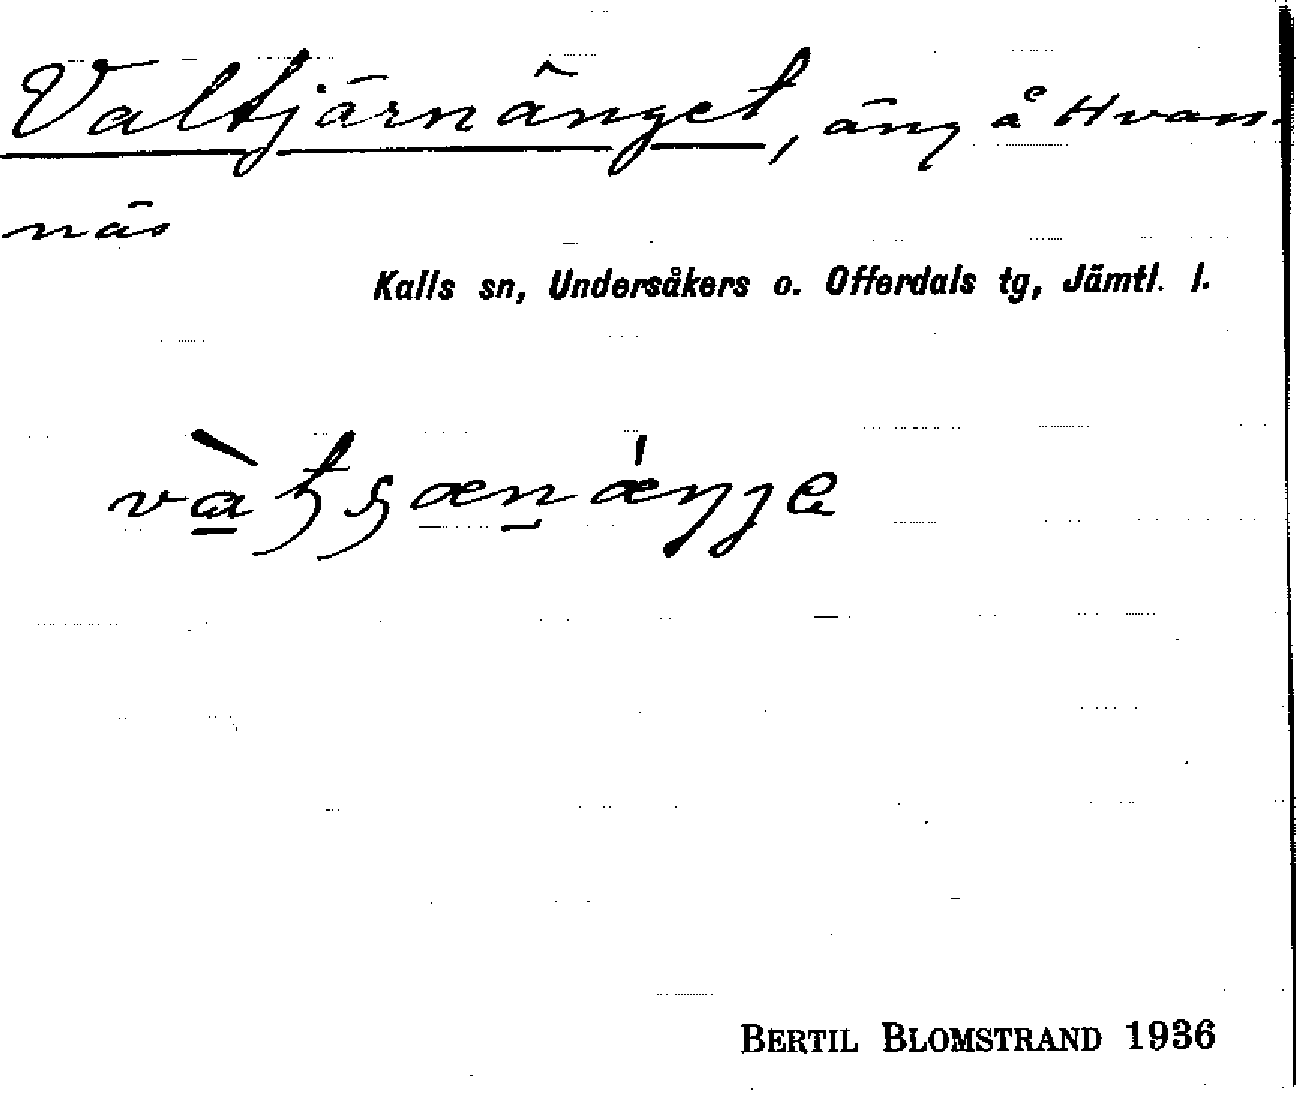 Valtjärnänget, äng å Hvass-
näs
Kalls sn, Undersåkers o. Offerdals tg, Jämtl. l.
BERTIL BLOMSTRAND 1936